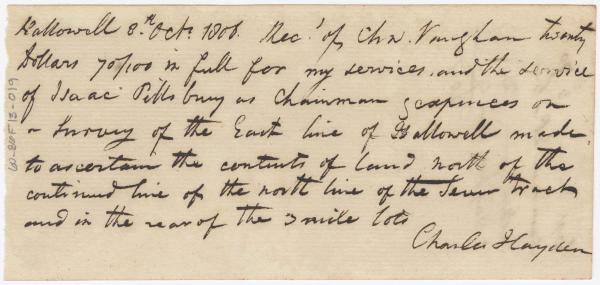 Hallowell 8.th Oct. 1806. Rec.d of Cha. Vaughan twenty
Dollars 70/100 in full for my services, and the service
of Isaac Pillsbury as Chainman & expences on
a Survey of the East line of Hallowell made
to ascertain the contents of land north of the
continued line of the north line of the tract
and in the rear of the 3 mile lots
Charles Hayden
13-019